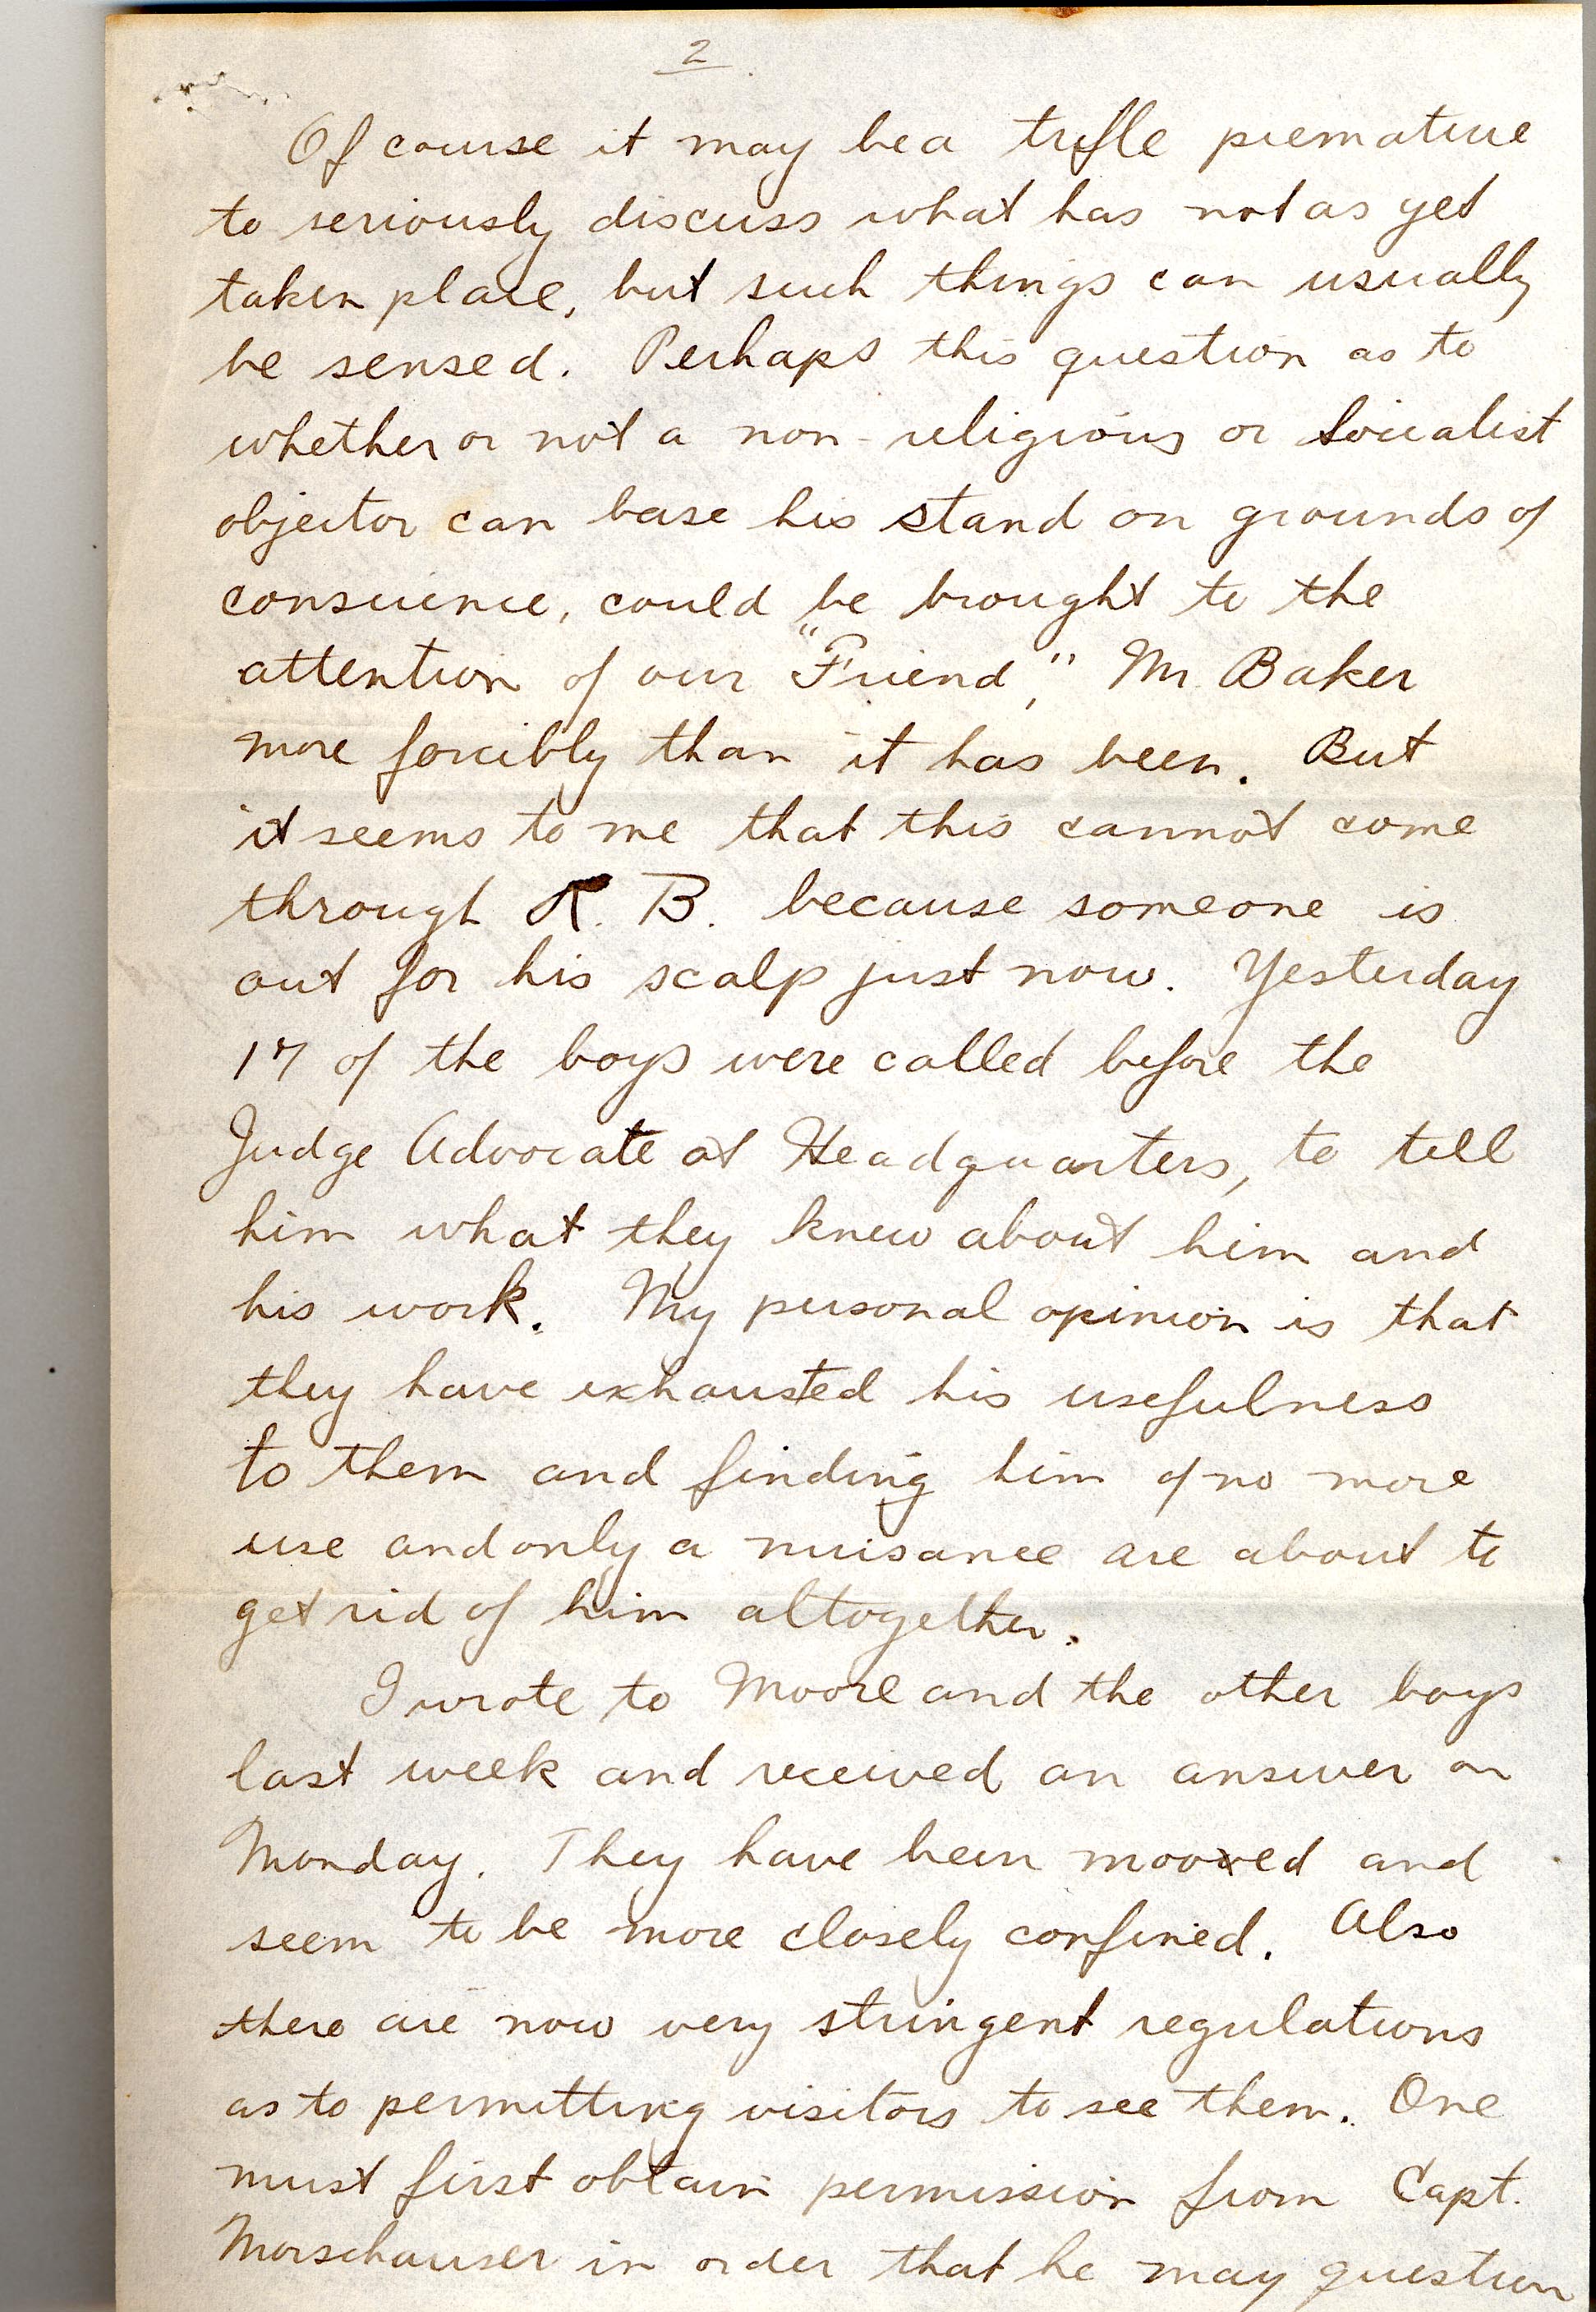 2
Of course it may be a trifle premature
to seriously discuss what has not as yet
taken place, but such things can usually
be sensed. Perhaps this question as to
whether or not a non-religious or Socialist
objector can base his stand on grounds of
conscience, could be brought to the
attention of our "Friend," Mr. Baker
more forcibly than it has been. But
it seems to me that this cannot come
through R. B. because someone is
out for his scalp just now. Yesterday
17 of the boys were called before the
Judge Advocate at Headquarters, to tell
him what they knew about him and
his work. My personal opinion is that
they have exhausted his usefulness
to them and finding him of no more
use and only a nuisance are about to
get rid of him altogether.
I wrote to Moore and the other boys
last week and received an answer on
Monday. They have been mooved and
seem to be more closely confined. Also
there are now very stringent regulations
as to permitting visitors to see them. One
must first obtain permission from Capt.
Morschauser in order that he may question